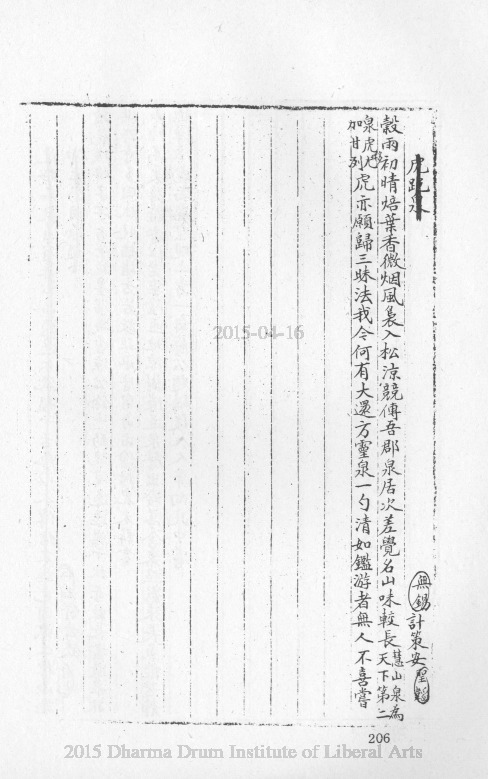 虎跑泉
無錫 計策安
穀雨初晴焙葉香微烟風裊入松涼競傳吾郡泉居次差覺名山味較長慧山泉為
天下第二
泉虎跑尤
加甘列
虎亦願歸三昧法我今何有大還方靈泉一勺清如鑑游者無人不喜嘗
2015-04-16
206
2015 Dharma Drum Institute of Liberal Arts